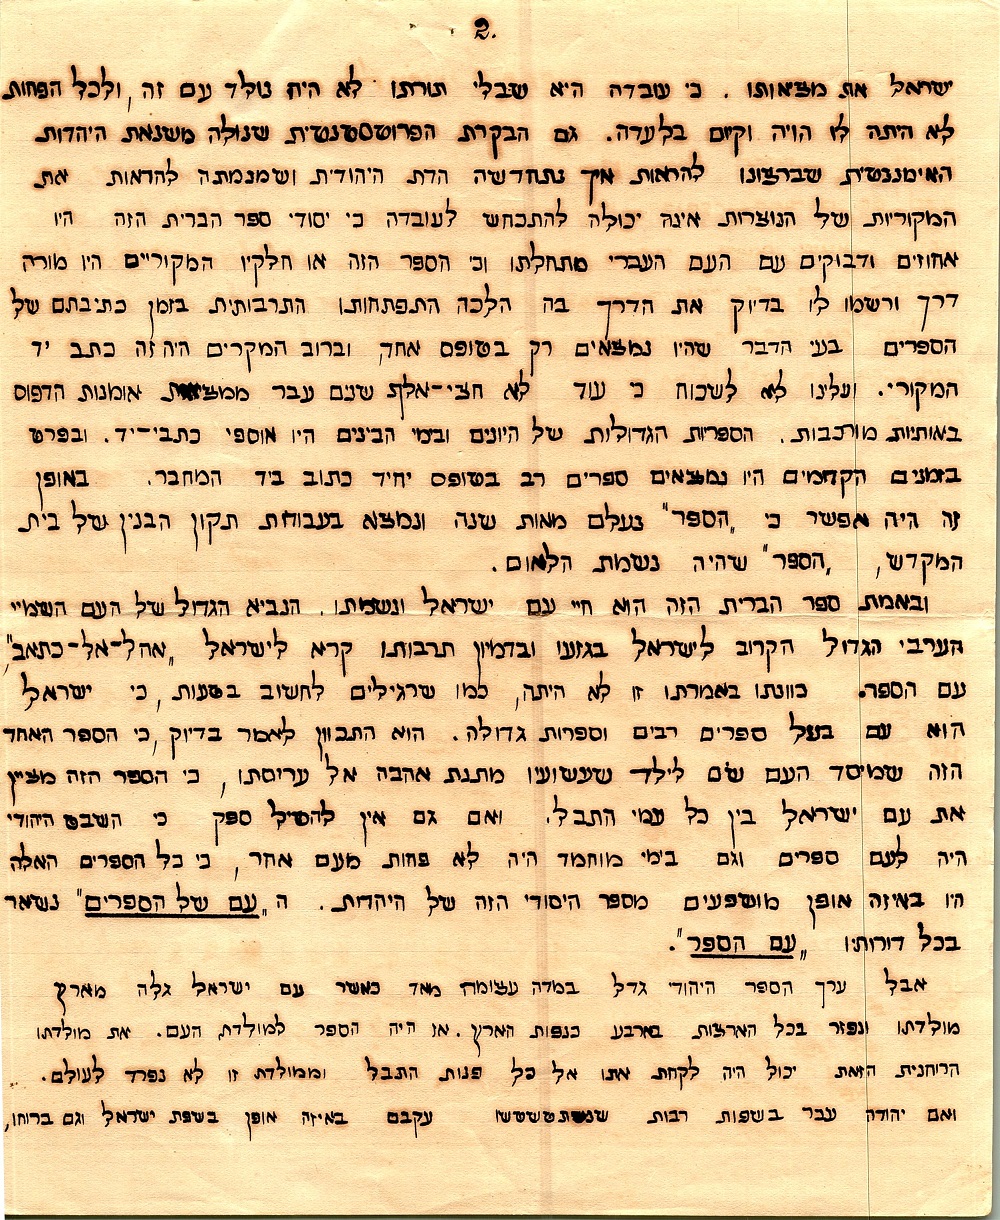 2.
ישראל את מציאותו. כי עובדה היא שבלי תורתו לא היה נולד עם זה, ולכל הפחות
לא היתה לו הויה וקיום בלעדה. גם הבקרת הפרוטסטנטית שנולה משנאת היהדות
האימננטית שברצונו להראות איך נתחדשיה הדת היהודית ושמגמתה להראות את
המקוריות של הנוצרות אינה יכולה להתכחש לעובדה כי יסודי ספר הברית הזה היו
אחוזים ודבוקים עם העם העברי מתחלתו וכי הספר הזה או חלקיו המקוריים היו מורה
דרך ורשמו לו בדיוק את הדרך בה הלכה התפתחותו התרבותית בזמן כתיבתם של
הספרים בעי הדבר שהיו נמצאים רק בטופס אחד, וברוב המקרים היה זה כתב יד
המקורי. ועלינו לא לשכוח כי עוד לא חצי-אלף שנים עבר ממציאת אומנות הדפוס
באותיות מורכבות. הספריות הגדולות של היונים ובימי הבינים היו אוספי כתבי-יד. ובפרט
בזמנים הקדמים היו נמצאים ספרים רב בטופס יחיד כתוב ביד המחבר. באופן
זה היה אפשר כי „הספר" נעלם מאות שנה ונמצא בעבודת תקון הבנין של בית
המקדש, „הספר" שהיה נשמת הלאום.
ובאמת ספר הברית הזה הוא חיי עם ישראל ונשמתו. הנביא הגדול של העם השמיי
הערבי הגדול הקרוב לישראל בגזעו ובדמיון תרבותו קרא לישראל „אהל-אל-כתאב",
עם הספר. כוונתו באמרתו זו לא היתה, כמו שרגילים לחשוב בטעות, כי ישראל
הוא עם בעל ספרים רבים וספרות גדולה. הוא התכוון לאמר בדיוק, כי הספר האחד
הזה שמיסד העם שם לילד שעשועיו מתנת אהבה אל עריסתו, כי הספר הזה מציין
את עם ישראל בין כל עמי התבל. ואם גם אין להטיל ספק כי השבט היהודי
היה לעם ספרים וגם בימי מוחמד היה לא פחות מעם אחר, כי כל הספרים האלה
היו באיזה אופן מושפעים מספר היסודי הזה של היהדות. ה „עם של הספרים" נשאר
בכל דורותיו „עם הספר".
אבל ערך הספר היהודי גדל במדה עצומה מאד כאשר עם ישראל גלה מארץ
מולדתו ונפזר בכל הארצות בארבע כנפות הארץ. אז היה הספר למולדת העם. את מולדתו
הרוחנית הזאת יכול היה לקחת אתו אל כל פנות התבל וממולדת זו לא נפרד לעולם.
ואם יהודה עבר בשפות רבות עקבם באיזה אופן בשפת ישראל וגם ברוחו,